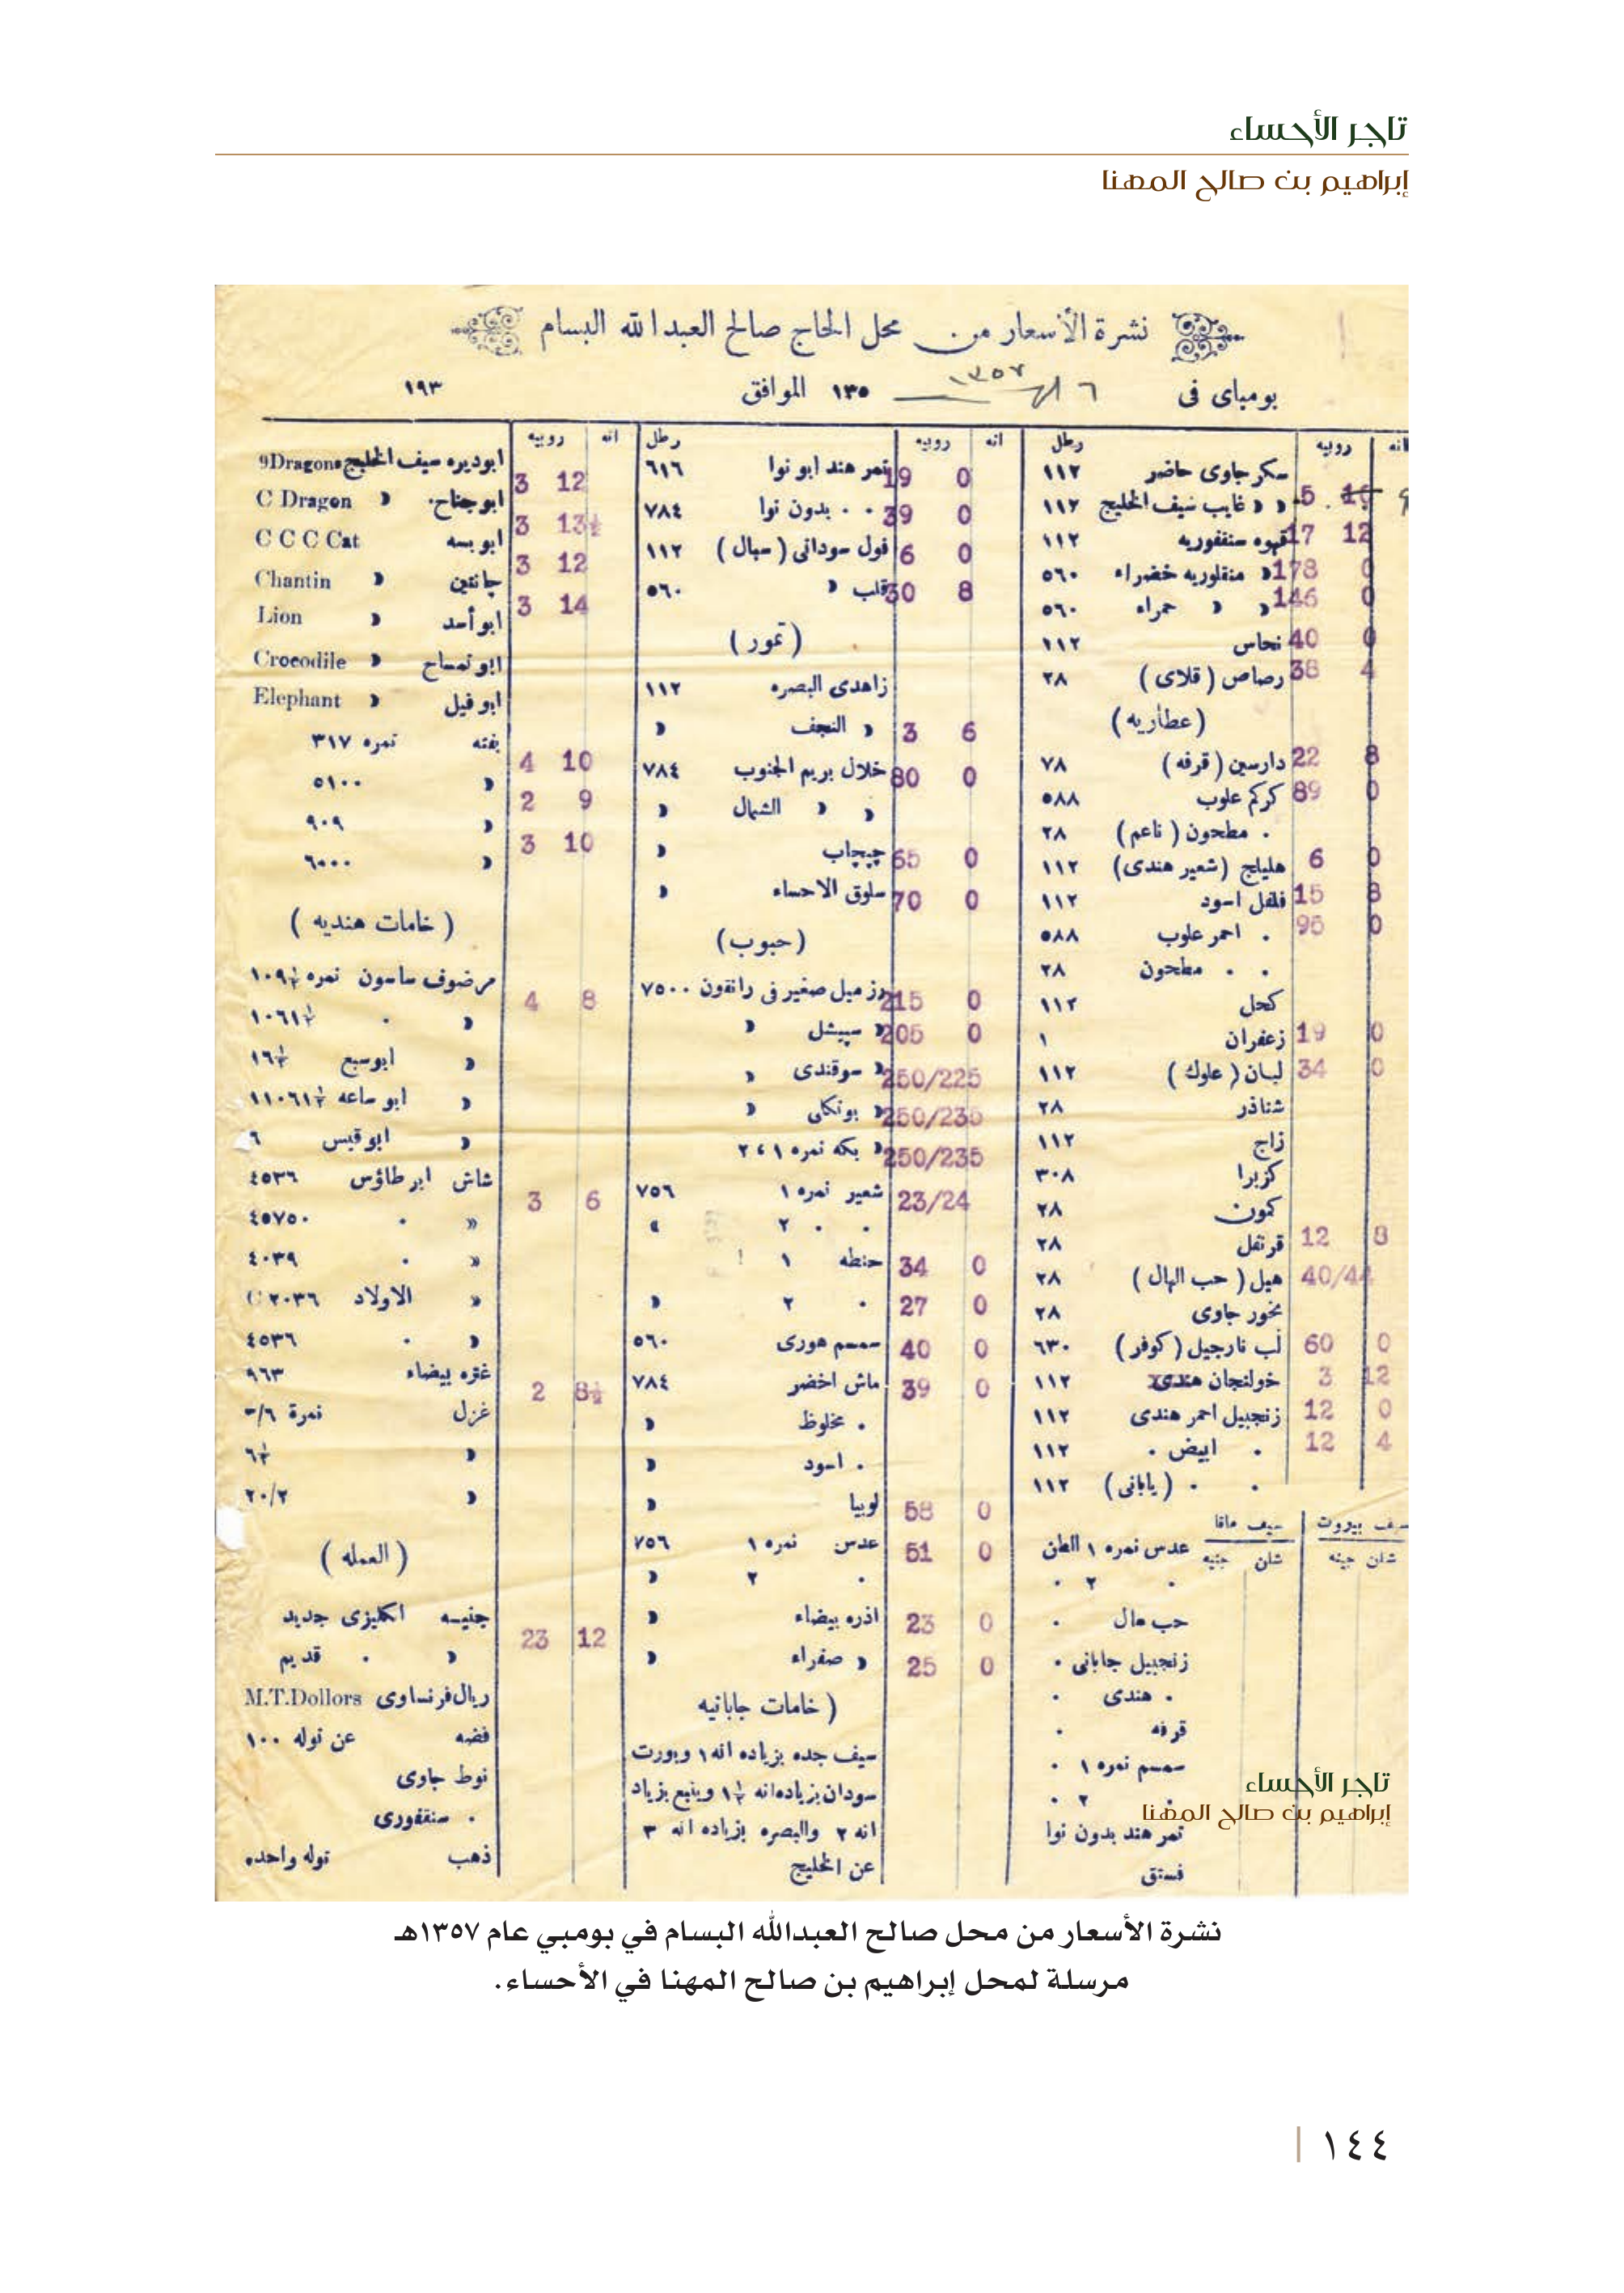 تاجر الأحساء
إبراهيم بن صالح المهنا
نشرة الأسعار من محل الحاج صالح العبدالله البسام
بومباى فى ٦ ١٣٥٧ ١٣٥ الموافق ١٩٣
انه روبيه رطل
سكر جاوى حاضر ١١٢
« « غايب سيف الخليج ١١٢ 5
قهوه سنقفوريه ١١٢ 17 12
« منقلوريه خضراء ٥٦٠ 178 0
« « حمراء ٥٦٠ 146 0
نحاس ١١٢ 40 0
رصاص ( قلاى ) ٢٨ 38 4
( عطاريه )
دارسين ( قرفه ) ٧٨ 22 8
كركم علوب ٥٨٨ 89 0
. مطحون ( ناعم ) ٢٨
هليلج ( شعير هندى ) ١١٢ 6 0
فلفل اسود ١١٢ 15 8
. احمر علوب ٥٨٨ 95 0
. . مطحون ٢٨
كحل ١١٢
زعفران ١ 19 0
لبان ( علوك ) ١١٢ 34 0
شناذر ٢٨
زاج ١١٢
كزبرا ٣٠٨
كمون ٢٨
قرنفل ٢٨ 12 8
هيل ( حب الهال ) ٢٨ 40/44
بخور جاوى ٢٨
لب نارجيل ( كوفر ) ٦٣٠ 60 0
خولنجان هندى ١١٢ 3 12
زنجبيل احمر هندى ١١٢ 12 0
. ابيض . ١١٢ 12 4
. . ( يابانى ) ١١٢
سيف بيروت سيف مالقا
شلن جينه شلن جنيه
عدس نمره ١ الطن
. ٢ .
حب هال .
زنجبيل جابانى .
. هندى .
قرفه .
سمسم نمره ١ .
. ٢ .
تمر هند بدون نوا
فستق
تاجر الأحساء
إبراهيم بن صالح المهنا
انه روبيه رطل
تمر هند ابو نوا ٦١٦ 19 0
. . بدون نوا ٧٨٤ 39 0
فول سودانى ( سبال ) ١١٢ 6 0
قلب « ٥٦٠ 30 8
( تمور )
زاهدى البصره ١١٢
« النجف « 3 6
خلال بريم الجنوب ٧٨٤ 80 0
« « الشمال «
چپچاب « 65 0
سلوق الاحساء « 70 0
( حبوب )
رز ميل صغير فى رانقون ٧٥٠٠ 215 0
« سپيشل « 205 0
« سوقندى « 250/225
« بونكلى « 250/235
« بكه نمره ١ ، ٢ 250/235
شعير نمره ١ ٧٥٦ 23/24
. . ٢ «
حنطه ١ 34 0
. ٢ « 27 0
سمسم هورى ٥٦٠ 40 0
ماش اخضر ٧٨٤ 39 0
. مخلوط «
. اسود «
لوبيا « 58 0
عدس نمره ١ ٧٥٦ 51 0
. ٢ «
اذره بيضاء « 23 0
« صفراء « 25 0
( خامات جابانيه
سيف جده بزياده انه ١ وبورت
سودان بزياده انه ١½ وينبع بزياد
انه ٢ والبصره بزياده انه ٣
عن الخليج
انه روبيه
ابوديره سيف الخليج 9Dragons 3 12
ابو جناح . « C Dragon 3 13½
ابو بسه C C C Cat 3 12
چانتين « Chantin 3 14
ابو أسد « Lion
ابو تمساح « Crocodile
ابو فيل « Elephant
بفته نمره ٣١٧ 4 10
« ٥١٠٠ 2 9
« ٩٠٩ 3 10
« ٦٠٠٠
( خامات هنديه )
مرضوف ساسون نمره ١٠٩½ 4 8
« . ١٠٦١½
« ابوسبع ١٦½
« ابو ساعه ١١٠٦١½
« ابو قبس ٦
شاش ابو طاؤس ٤٥٣٦ 3 6
« . ٤٥٧٥٠
« . ٤٠٣٩
« الاولاد ٢٠٣٦
« . ٤٥٣٦
غتره بيضاء ٩٦٣ 2 8½
غزل نمرة ٦/-
« ٦½
« ٢٠/٢
( العمله )
جنيسه انكليزى جديد 23 12
« . قديم
ريال فرنساوى M.T.Dollors
فضه عن توله ١٠٠
نوط جاوى
. سنقفورى
ذهب توله واحده
نشرة الأسعار من محل صالح العبدالله البسام في بومبي عام ١٣٥٧هـ
مرسلة لمحل إبراهيم بن صالح المهنا في الأحساء.
١٤٤